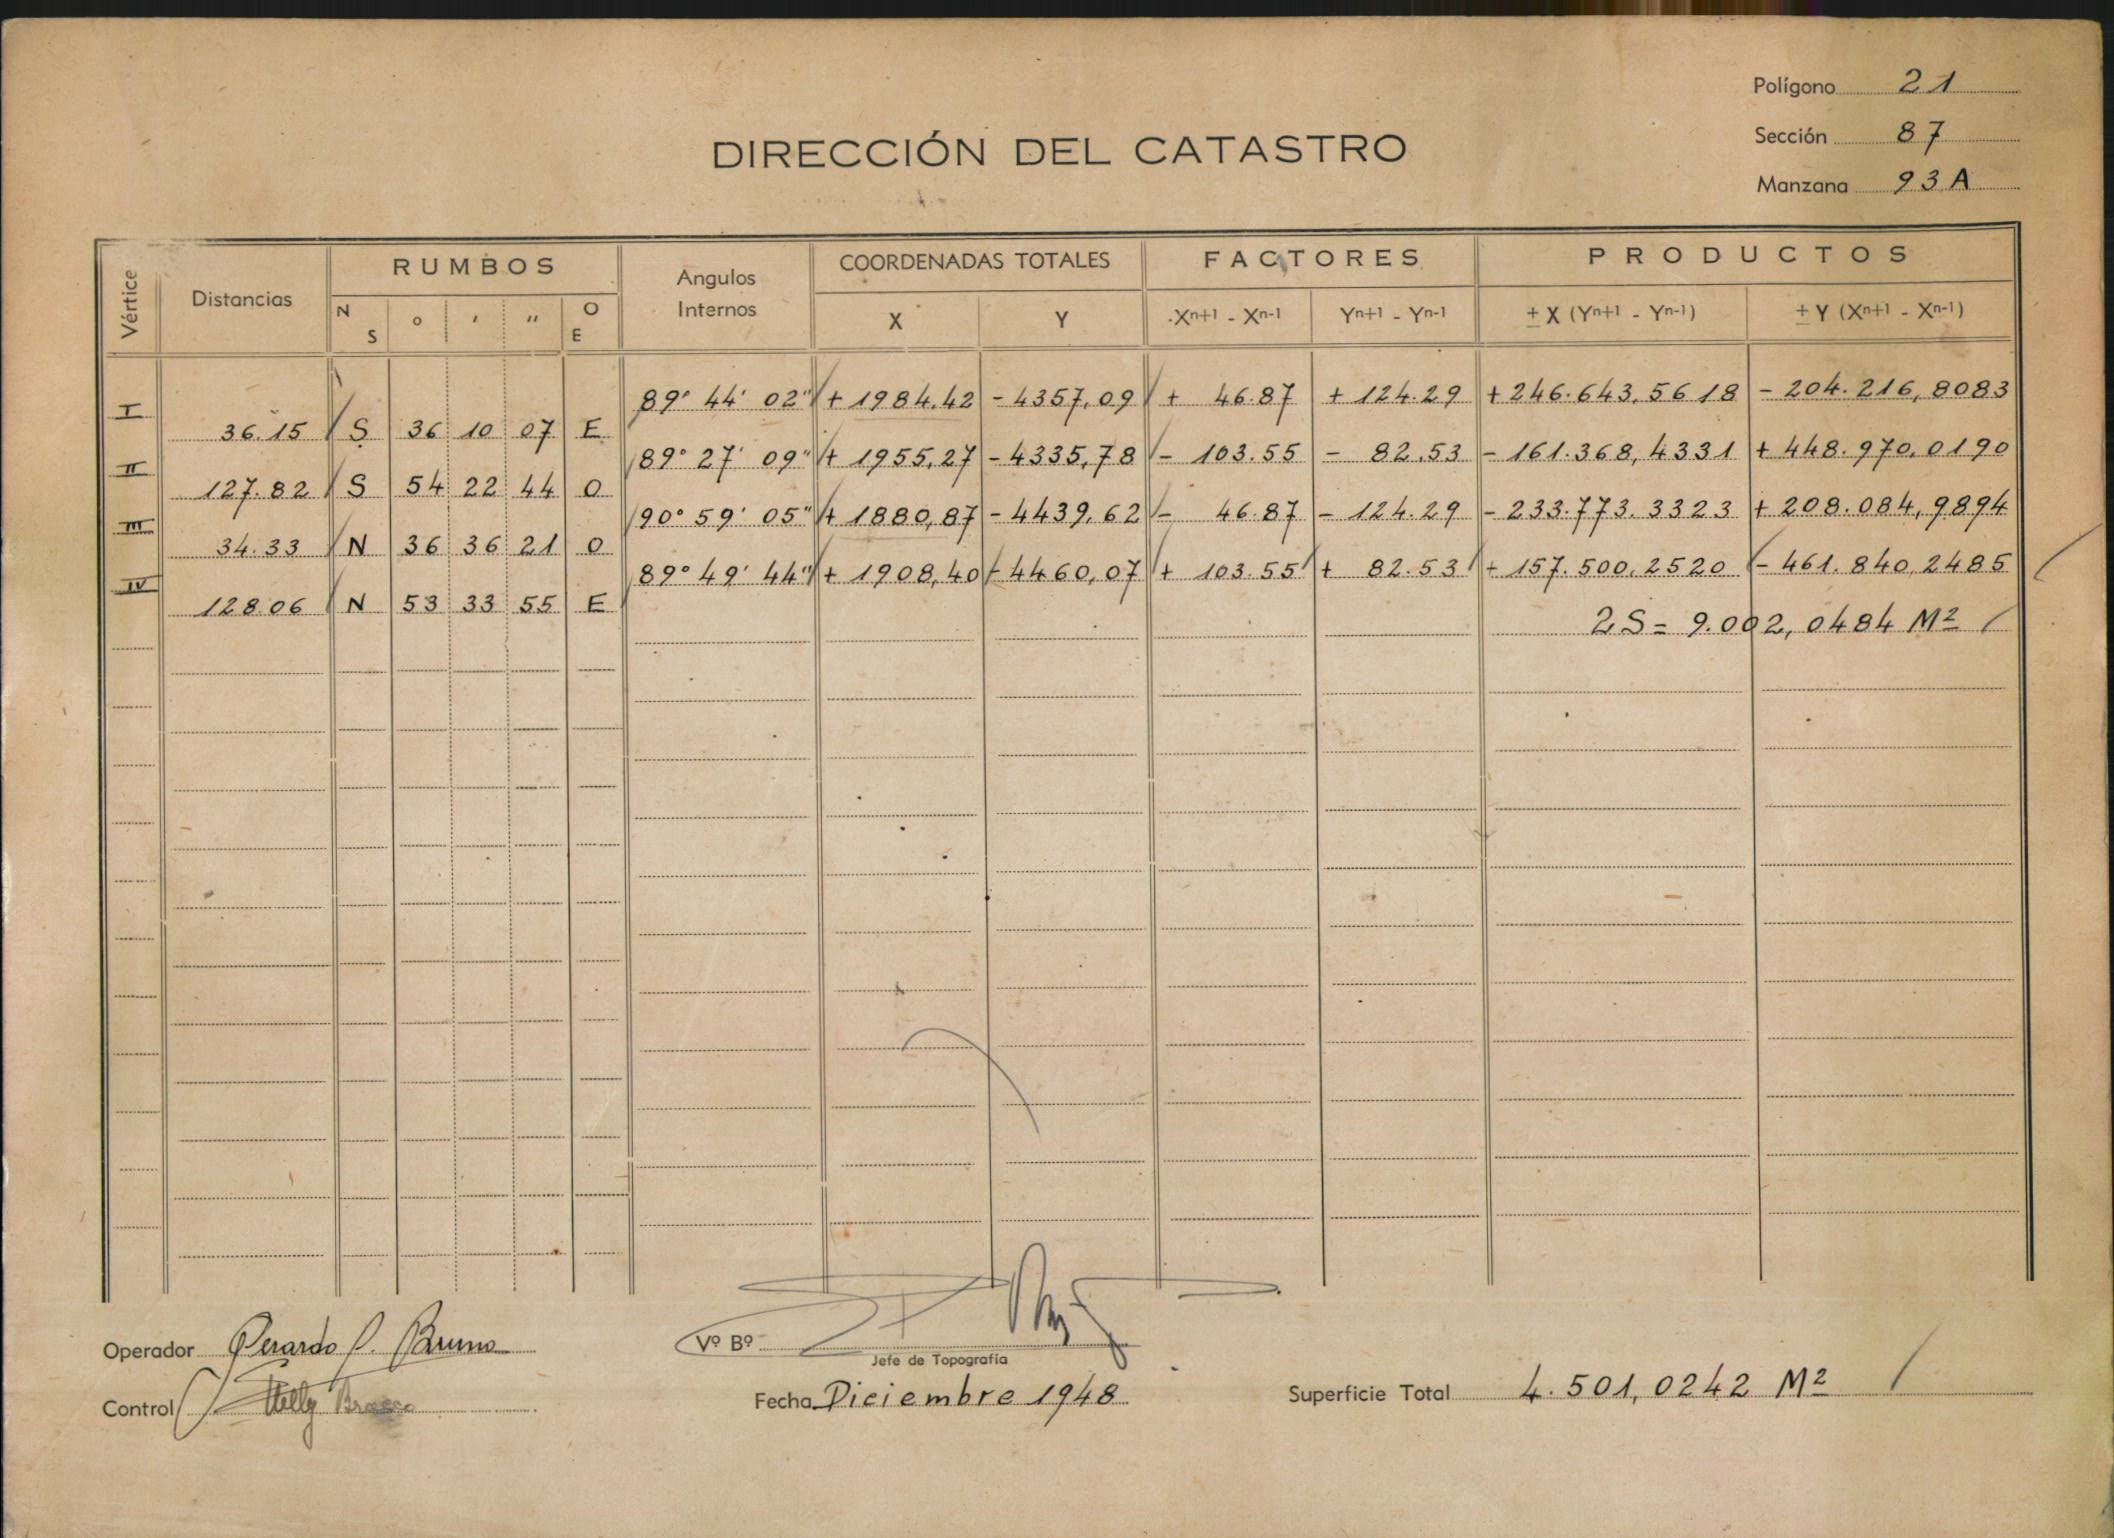 Polígono 21
Sección 87
Manzana 93A
DIRECCIÓN DEL CATASTRO
Vértice Distancias RUMBOS Angulos Internos COORDENADAS TOTALES FACTORES PRODUCTOS
N S ° ' " O E X Y Xn+1 - Xn-1 Yn+1 - Yn-1 ± X (Yn+1 - Yn-1) ± Y (Xn+1 - Xn-1)
I 89° 44' 02" + 1984.42 - 4357,09 + 46.87 + 124.29 + 246.643,5618 - 204.216,8083
36.15 S 36 10 07 E
II 89° 27' 09" + 1955,27 - 4335,78 - 103.55 - 82.53 - 161.368,4331 + 448.970,0190
127.82 S 54 22 44 O
III 90° 59' 05" + 1880,87 - 4439,62 - 46.87 - 124.29 - 233.773.3323 + 208.084,9894
34.33 N 36 36 21 O
IV 89° 49' 44" + 1908,40 - 4460,07 + 103.55 + 82.53 + 157.500.2520 - 461.840,2485
128.06 N 53 33 55 E
2S = 9.002,0484 M²
Operador Gerardo P. Bruno
Vº Bº
Jefe de Topografía
Control Nelly
Fecha Diciembre 1948
Superficie Total 4.501,0242 M²